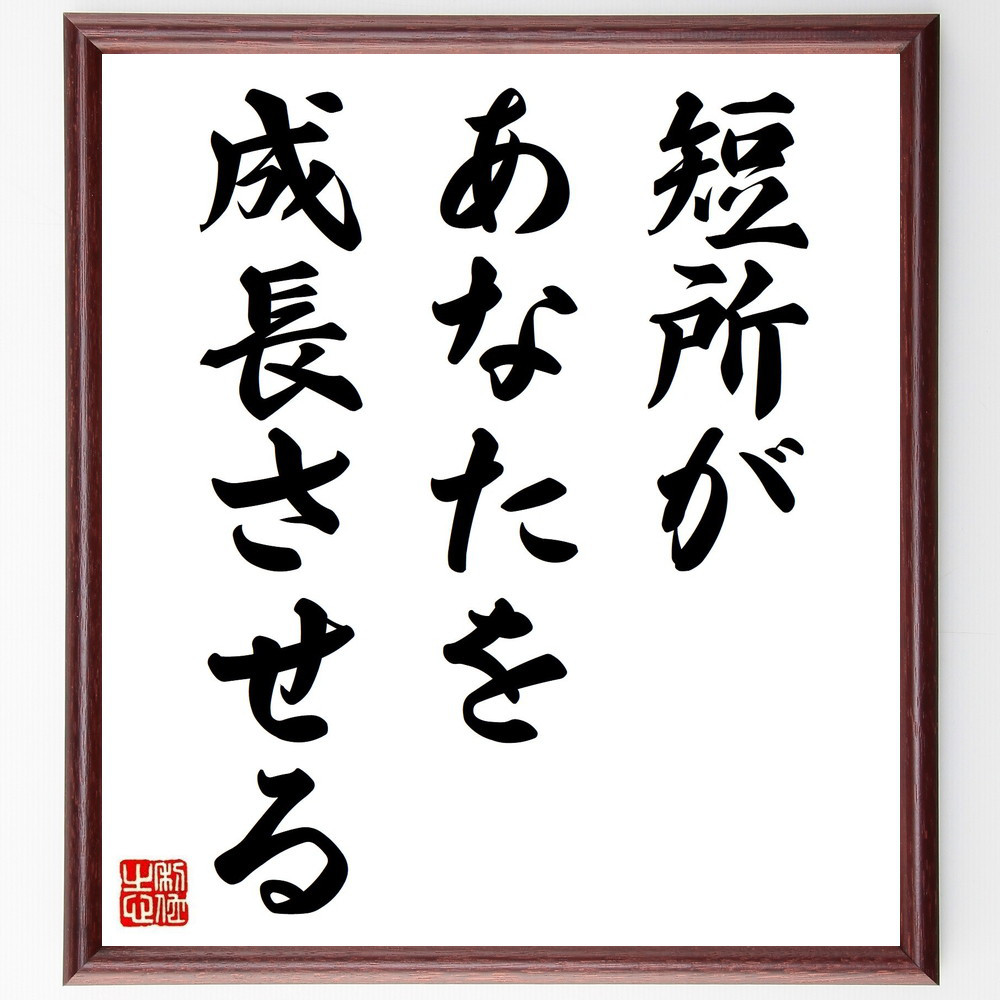 短所が
あなたを
成長させる